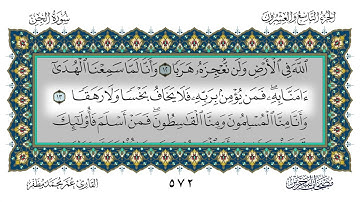 الجزء التاسع والعشرون
سورة الجن
ٱللَّهَ فِى ٱلْأَرْضِ وَلَن نُّعْجِزَهُۥ هَرَبًا ١٢ وَأَنَّا لَمَّا سَمِعْنَا ٱلْهُدَىٰٓ
ءَامَنَّا بِهِۦ فَمَن يُؤْمِنۢ بِرَبِّهِۦ فَلَا يَخَافُ بَخْسًا وَلَا رَهَقًا ١٣
وَأَنَّا مِنَّا ٱلْمُسْلِمُونَ وَمِنَّا ٱلْقَٰسِطُونَ فَمَنْ أَسْلَمَ فَأُو۟لَٰٓئِكَ
٥٧٢
القارئ: عمر محمد مظفر